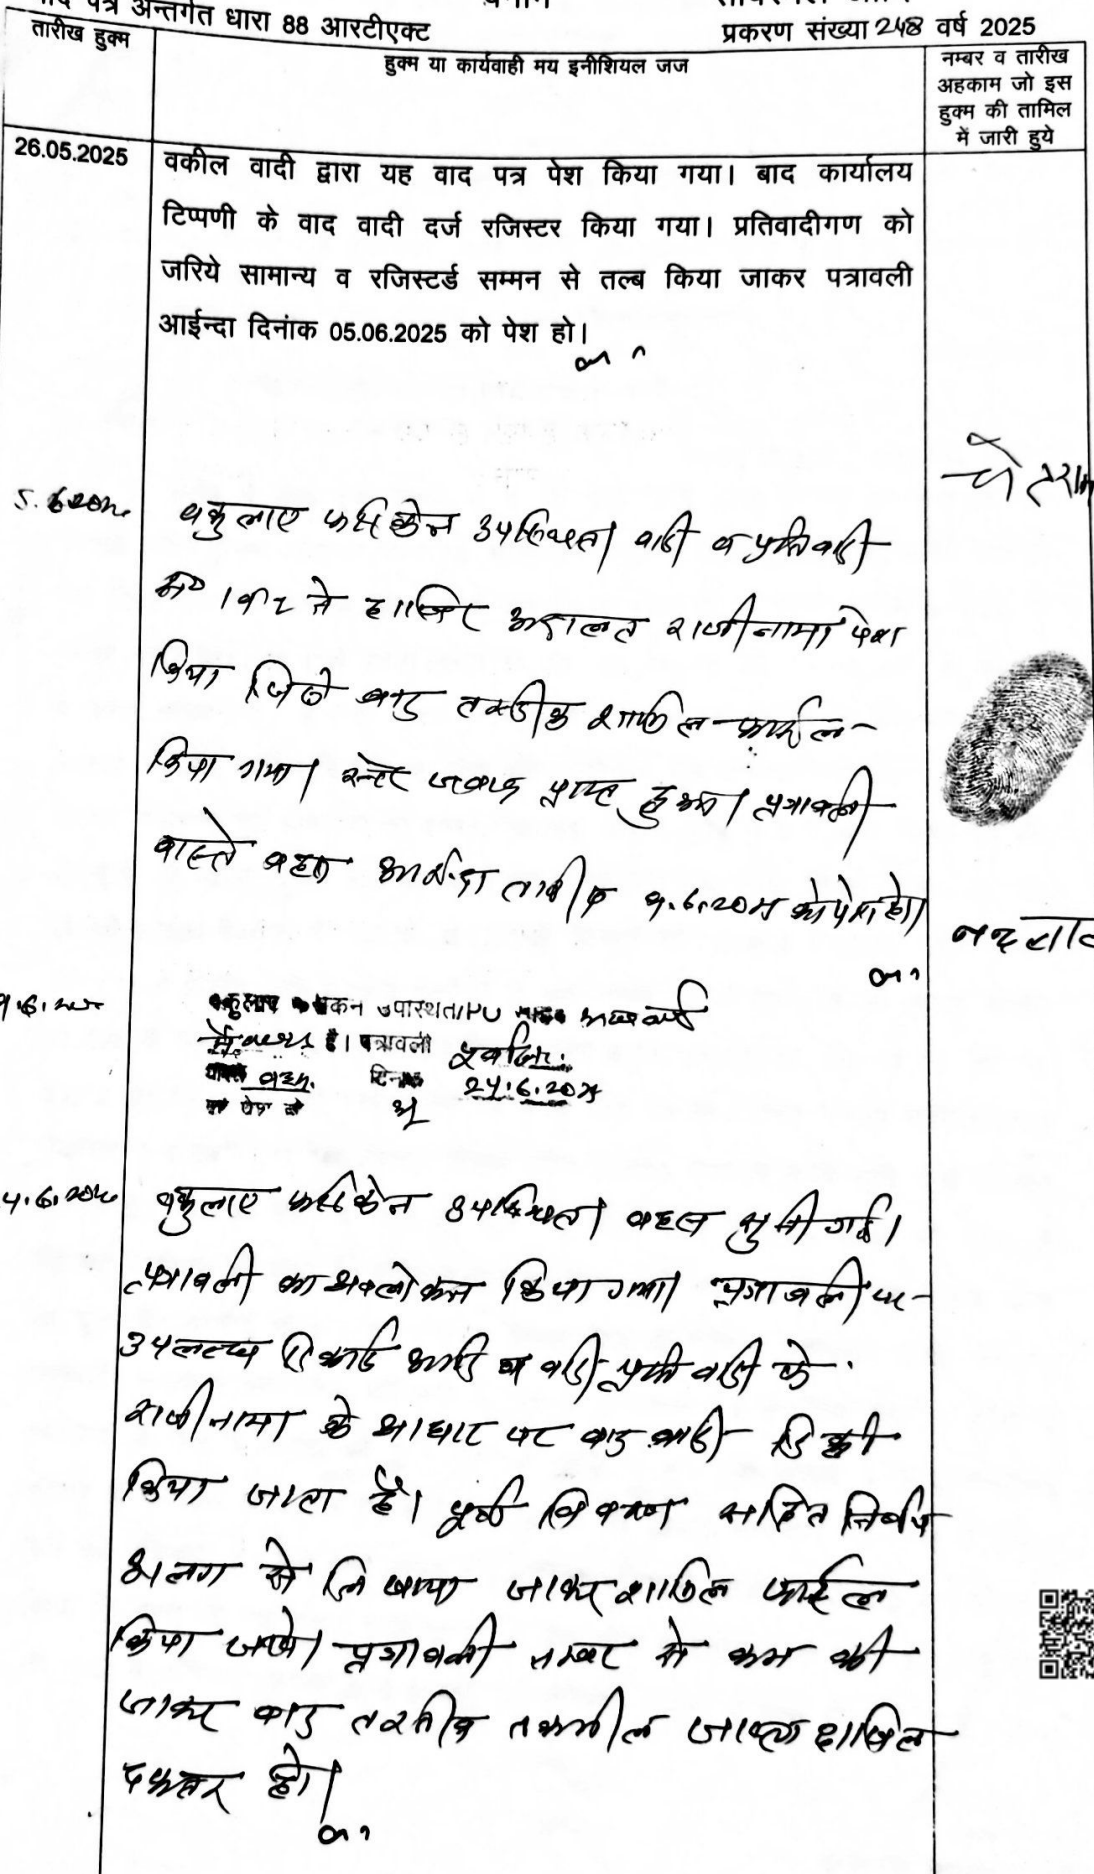 पत्र अन्तर्गत धारा 88 आरटीएक्ट
प्रकरण संख्या 248 वर्ष 2025
तारीख हुक्म
हुक्म या कार्यवाही मय इनीशियल जज
नम्बर व तारीख
अहकाम जो इस
हुक्म की तामिल
में जारी हुये
26.05.2025
वकील वादी द्वारा यह वाद पत्र पेश किया गया। बाद कार्यालय
टिप्पणी के वाद वादी दर्ज रजिस्टर किया गया। प्रतिवादीगण को
जरिये सामान्य व रजिस्टर्ड सम्मन से तल्ब किया जाकर पत्रावली
आईन्दा दिनांक 05.06.2025 को पेश हो।
वकुलाए फरिकेन उपस्थित। वादी व प्रतिवादी
1 व 2 ने हाजिर अदालत राजीनामा पेश
किया जिसे बाद तस्दीक शामिल फाईल
किया गया। जवाब प्राप्त हुआ। पत्रावली
वास्ते बहस आईन्दा तारीख 9.6.2025 को पेश हो।
पत्रावली
दिनांक 24.6.2025
वकुलाए फरिकेन उपस्थित। बहस सुनी गई।
पत्रावली का अवलोकन किया गया। पत्रावली पर
उपलब्ध रिकार्ड आदि व वादी प्रतिवादी के
राजीनामा के आधार पर वाद वादी डिक्री
किया जाता है। पूर्ण विवरण सहित निर्णय
अलग से लिखाया जाकर शामिल फाईल
किया जावे। पत्रावली नम्बर से कम की
जाकर बाद तरतीब तकमील जाब्ता दाखिल
दफ्तर हो।